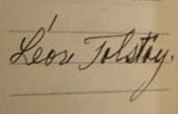 Léon Tolstoy.